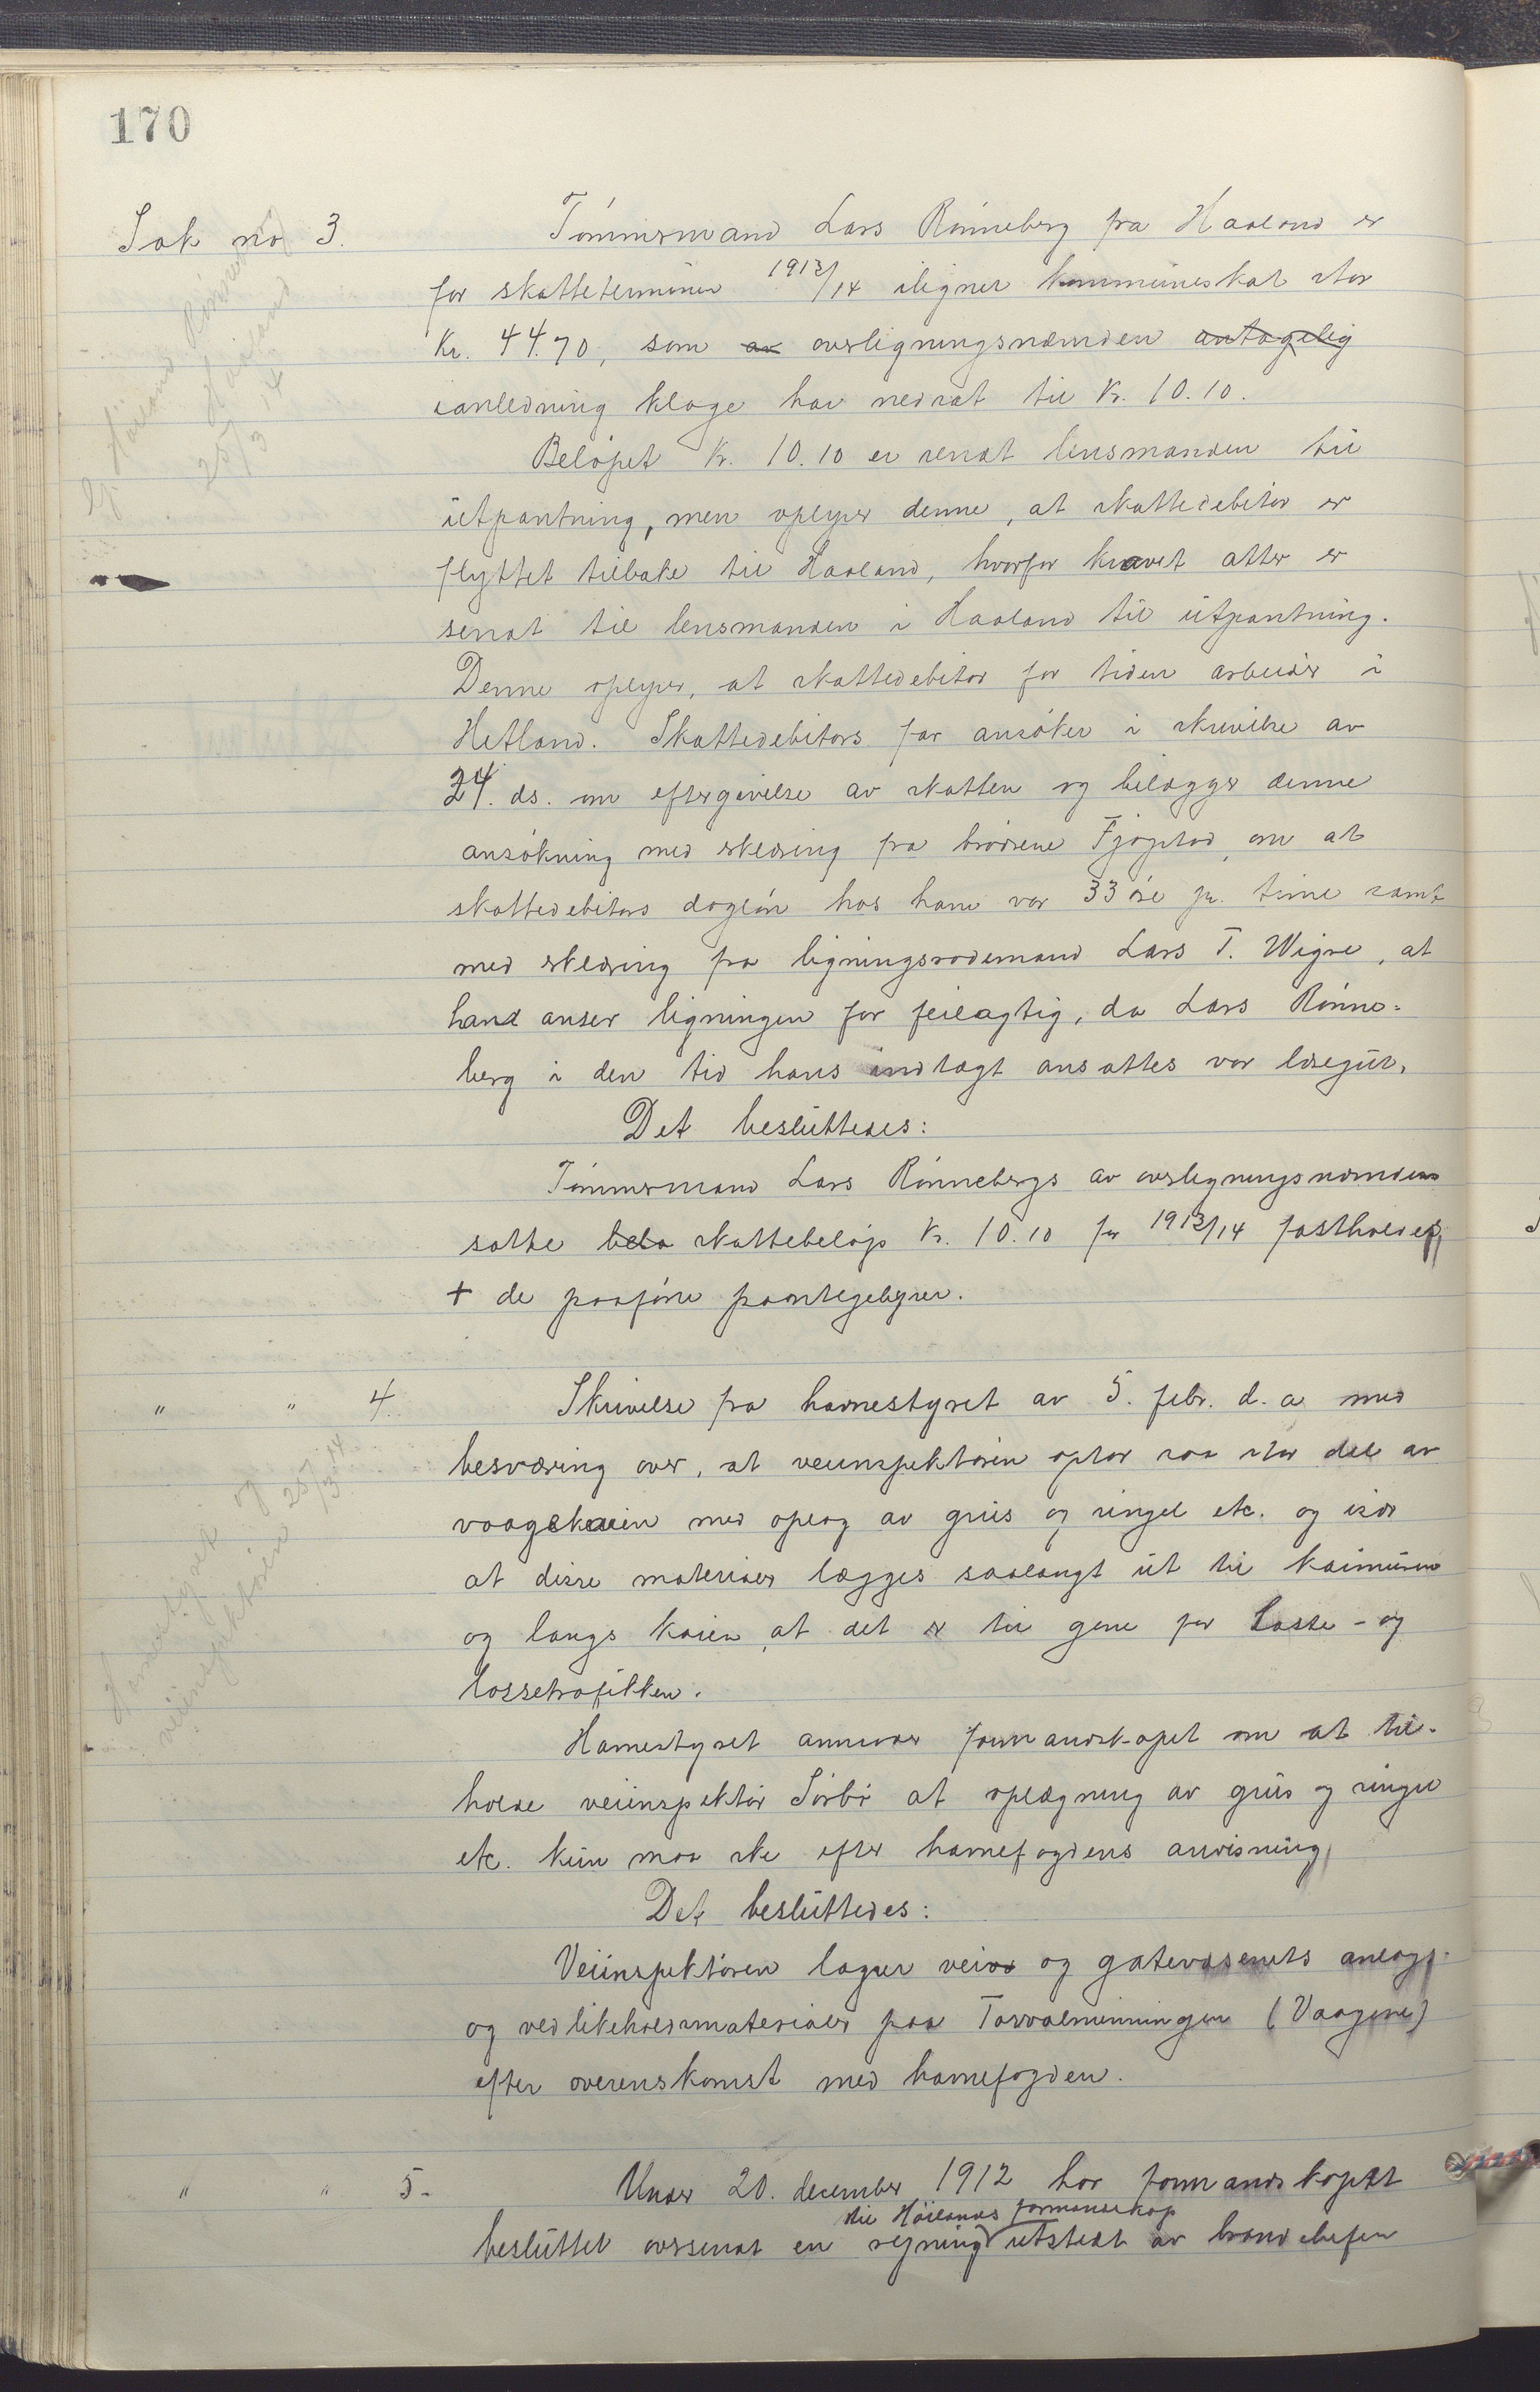 170
Sak no 3.
Tømmermand Lars Rønneberg fra Haaland er
for skatteterminen 1913/14 ilignet kommuneskat stor
Kr. 44.70, som av overligningsnæmden antagelig
ianledning klage har nedsat til Kr. 10.10.
Beløpet Kr. 10.10 er sendt lensmanden til
utpantning, men oplyser denne, at skattedebitor er
flyttet tilbake til Haaland, hvorfor kravet atter er
sendt til lensmanden i Haaland til utpantning.
Denne oplyser, at skattedebitor for tiden arbeider i
Hetland. Skattedebitors far ansøker i skrivelse av
24. ds. om eftergivelse av skatten og bilægger denne
ansøkning med erklæring fra brødrene Fjogstad, om at
skattedebitors dagløn hos ham var 33 øre pr. time samt
med erklæring fra ligningsrodemand Lars T. Wigre, at
hand anser ligningen for feilagtig, da Lars Rønne-
berg i den tid hans indtægt ansattes var læregut.
Det besluttedes:
Tømmermand Lars Rønnebergs av overligningsnæmden
satte belø skattebeløp Kr. 10.10 for 1913/14 fastholdes
+ de paaførte pantegebyrer.
" " 4.
Skrivelse fra havnestyret av 5. febr. d. a. med
besværing over, at veiinspektøren optar saa stor del av
vaagekaien med oplag av grus og singel etc. og især
at disse materialer lægges saalangt ut til kaimuren
og langs kaien, at det er til gene for laste- og
lossetrafikken.
Havnestyret anmoder formandskapet om at til-
holde veiinspektør Sørbø at oplægning av grus og singel
etc. kun maa ske efter havnefogdens anvisning.
Det besluttedes:
Veiinspektøren lagrer vei og gatevæsenets anlægs-
og vedlikeholdsmaterialer paa Torvalmenningen (Vaagene)
efter overenskomst med havnefogden.
" " 5.
Under 20. december 1912 har formandskapet
til Høilands formandskap
besluttet oversendt en regning utstedt av brandchefen